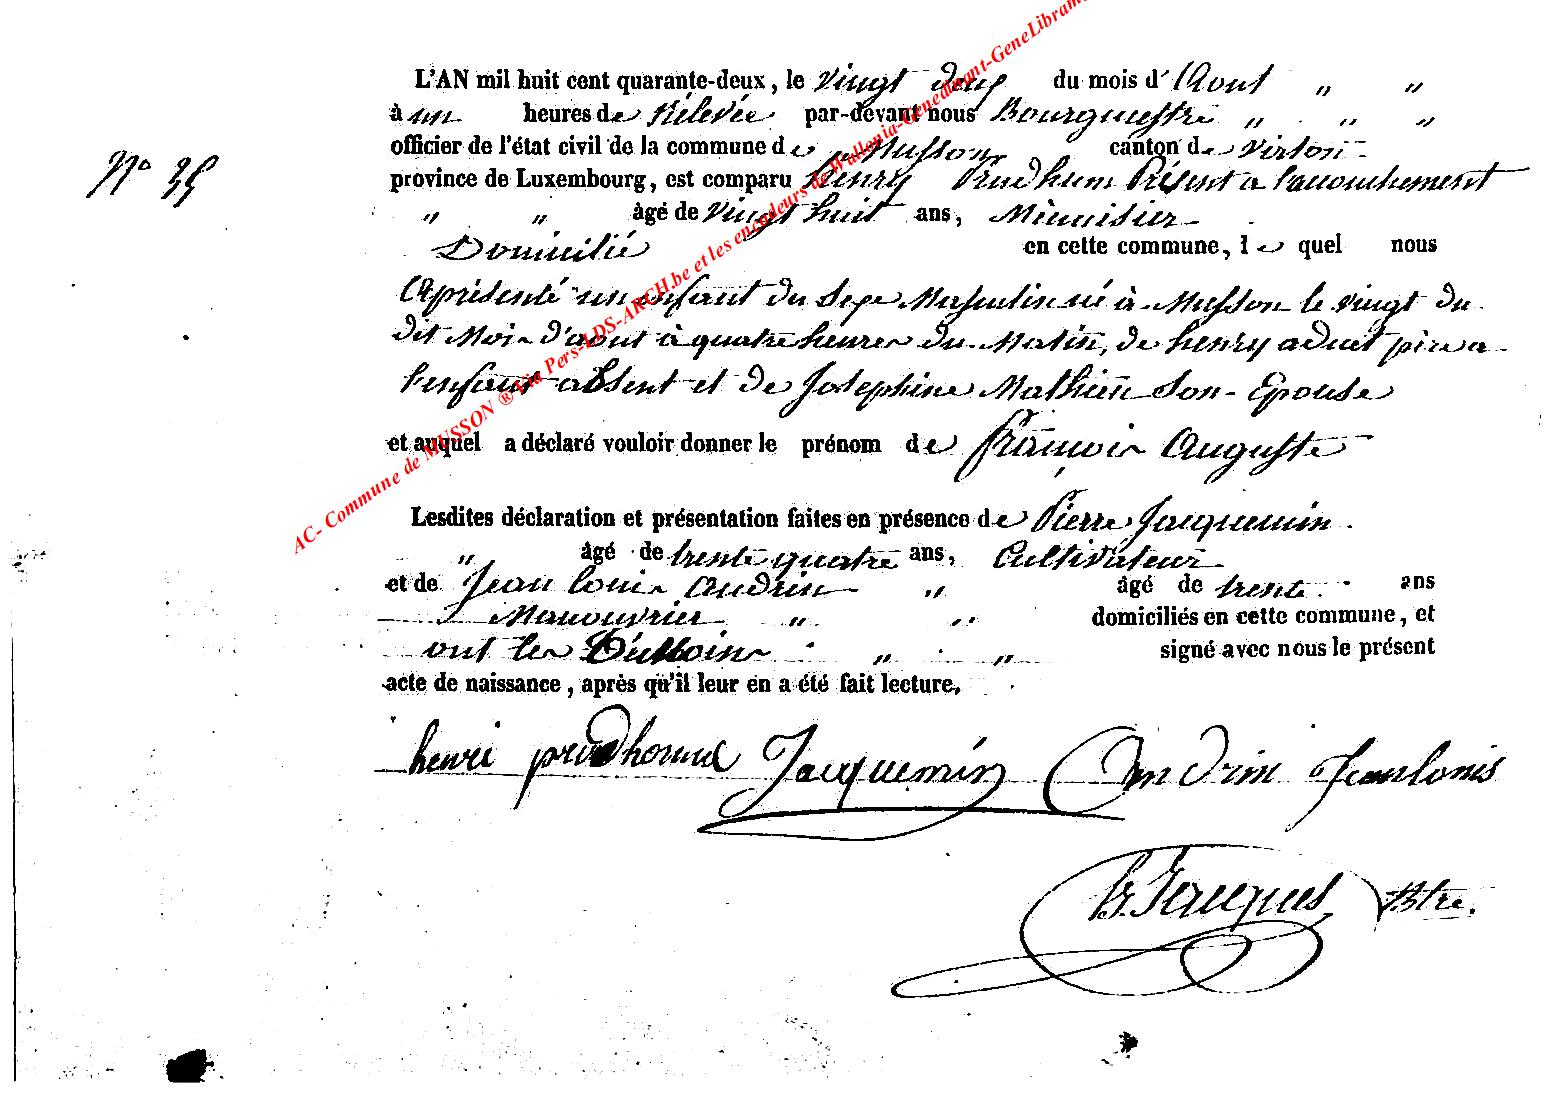 L'AN mil huit cent quarante-deux, le vingt deux du mois d'Aout " "
à un heures de Rélevée par-devant nous Bourguestre " " "
officier de l'état civil de la commune de Musson canton de Virton
N° 35
province de Luxembourg, est comparu henry Prudhum Présent a l'accouchement
" " âgé de vingt huit ans, Ménuisier
Domicilié en cette commune, le quel nous
a présenté un enfant du sexe Masculin né à Musson le vingt du
dit Mois d'aout à quatre heures du Matin, de henry aduet père a
l'enfant absent et de Josephine Mathieu son Epouse
et auquel a déclaré vouloir donner le prénom de françois Auguste
Lesdites déclaration et présentation faites en présence de Pierre Jacquemin
" âgé de trente quatre ans, Cultivateur
et de Jean louis Andrin " âgé de trente ans
Manouvrier " " domiciliés en cette commune, et
ont les Témoins " " signé avec nous le présent
acte de naissance, après qu'il leur en a été fait lecture.
henri prudhomme Jacquemin Andrin Jean louis
Jacques Btre.
AC- Commune de MUSSON ® Via Pers-LDS-ARCH.be et les encodeurs de Wallonia-Genedinant-GeneLibram